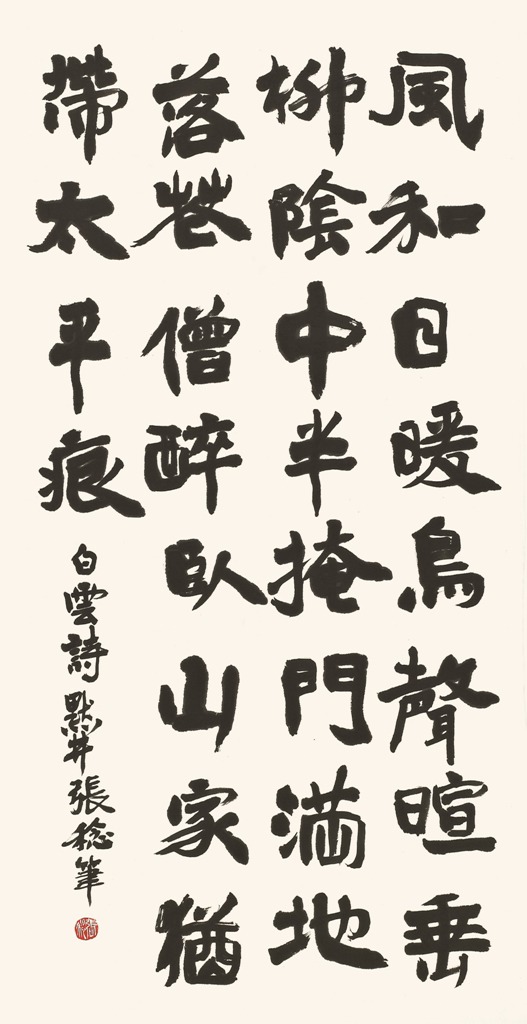 風和日暖鳥聲暄垂
柳陰中半掩門満地
落花僧醉臥山家猶
帶太平痕
白雲詩 默井張稔筆